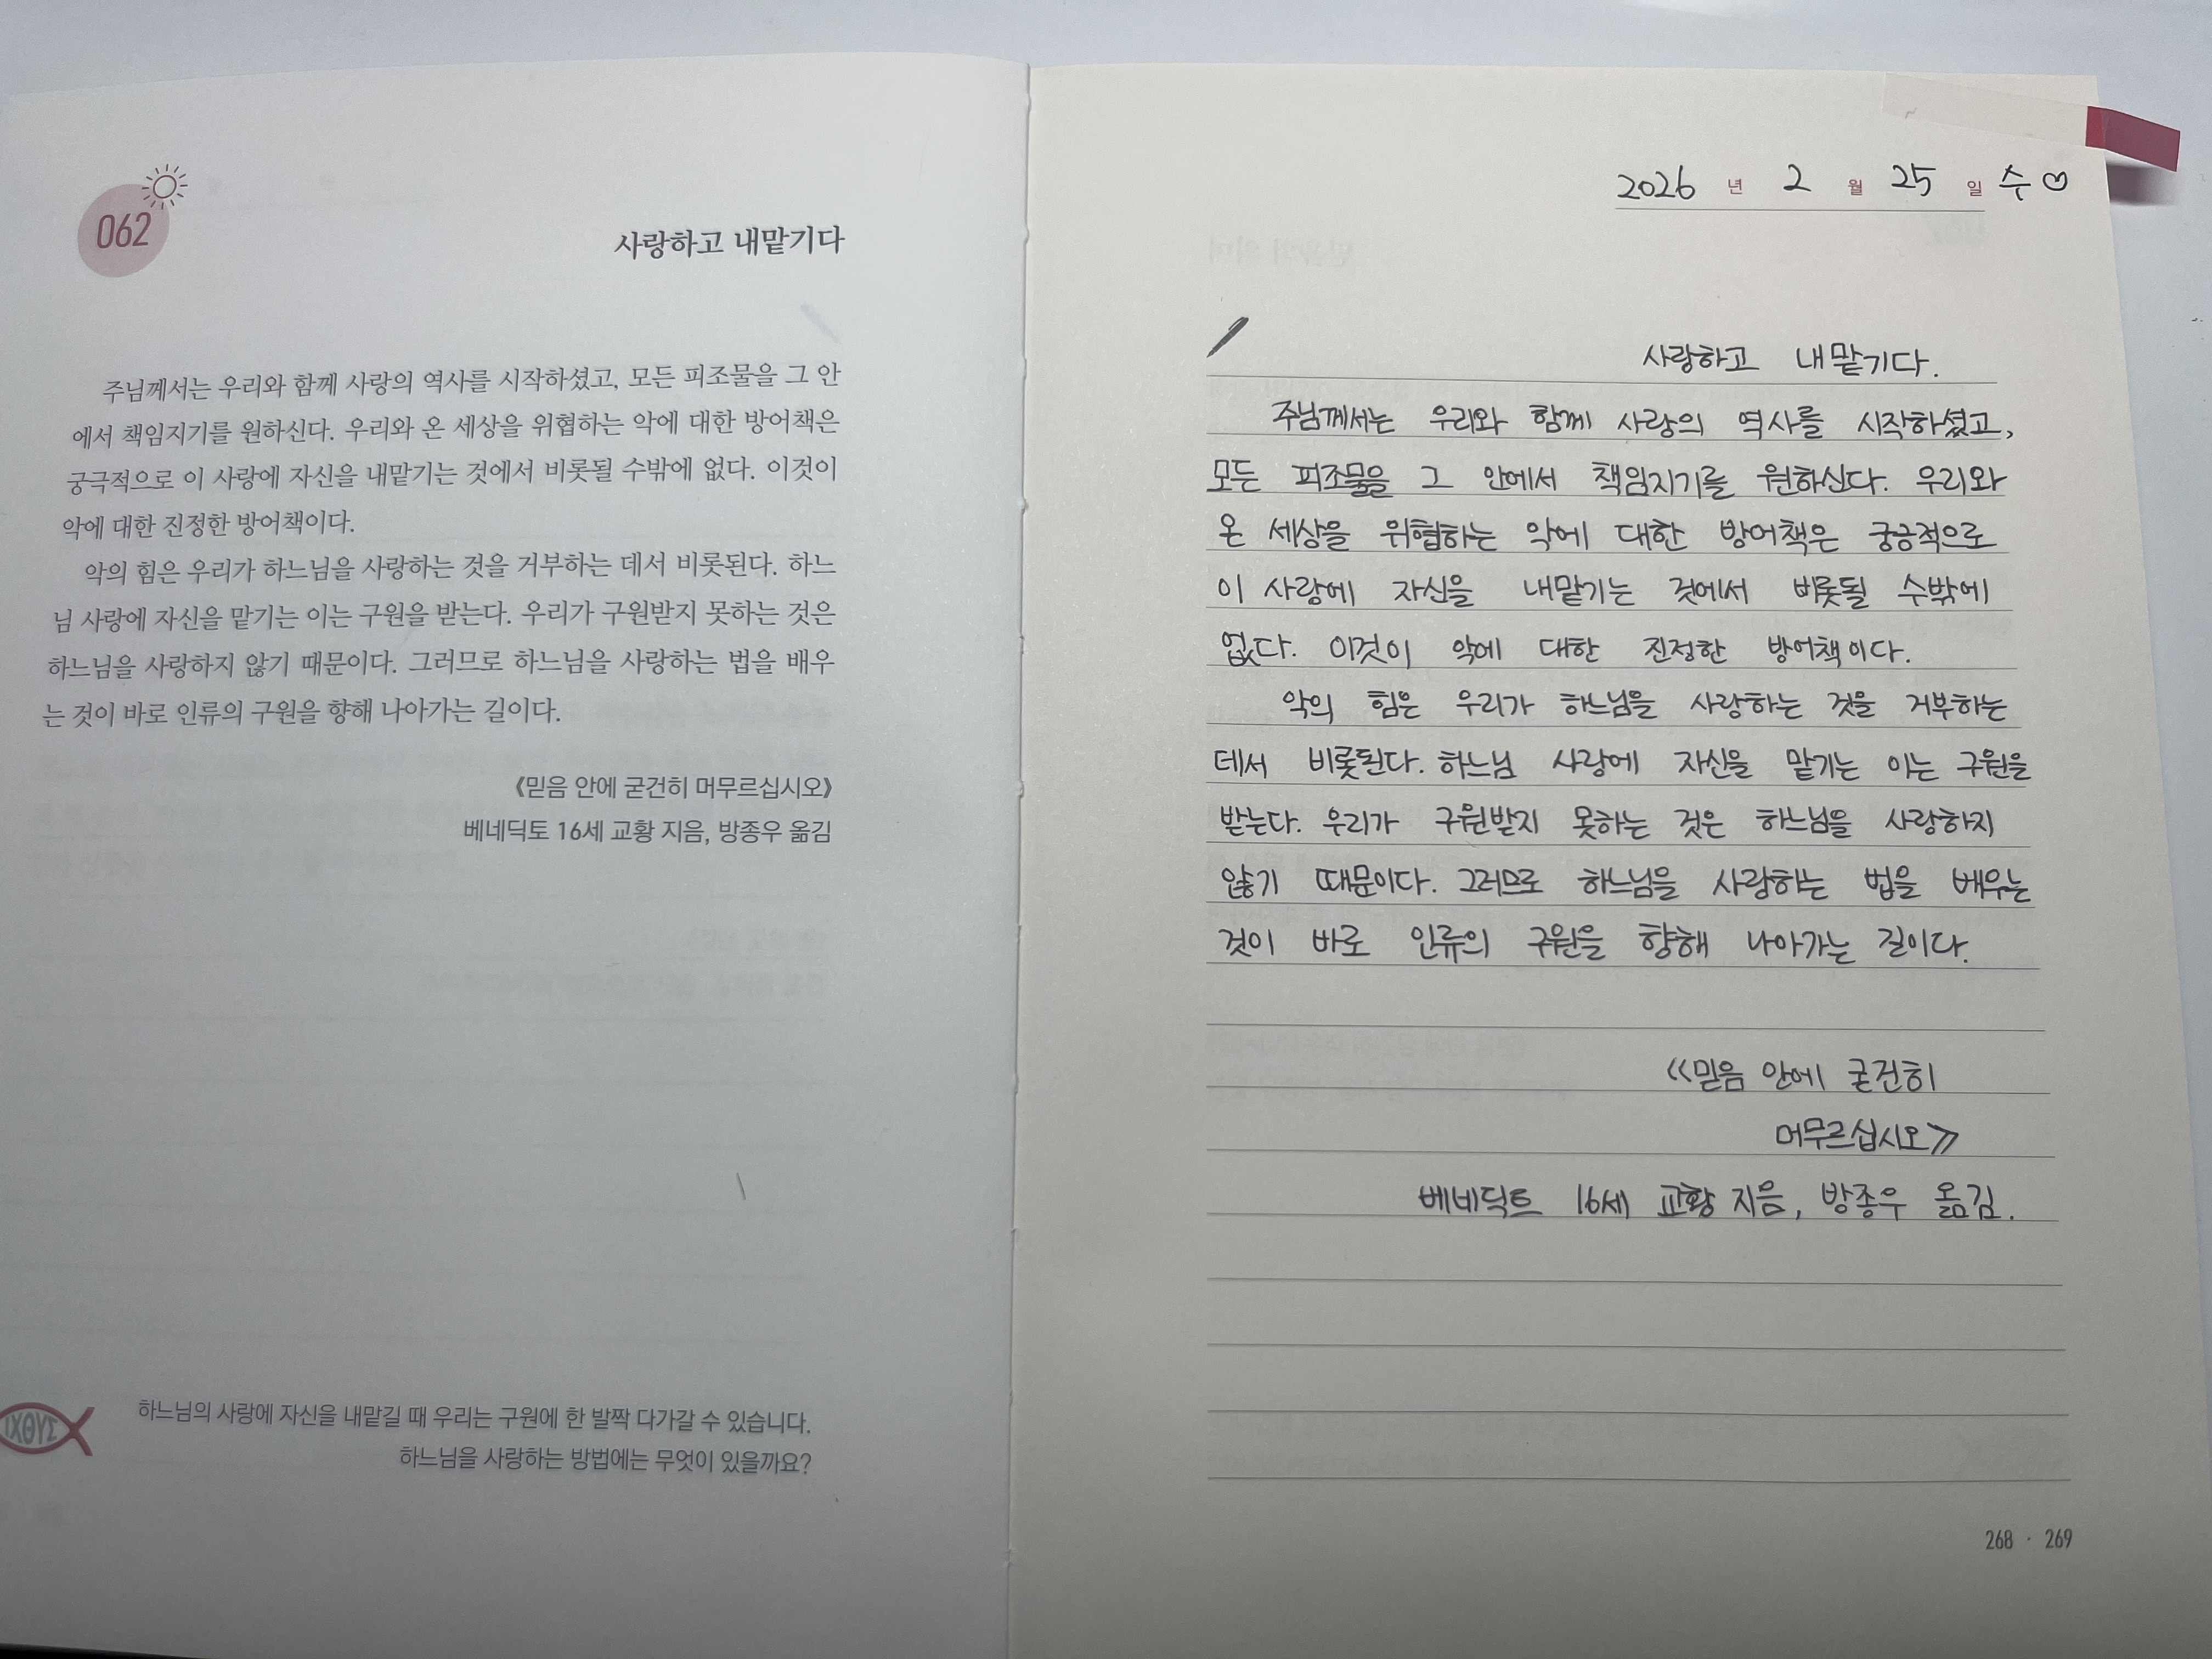 062
사랑하고 내맡기다
주님께서는 우리와 함께 사랑의 역사를 시작하셨고, 모든 피조물을 그 안
에서 책임지기를 원하신다. 우리와 온 세상을 위협하는 악에 대한 방어책은
궁극적으로 이 사랑에 자신을 내맡기는 것에서 비롯될 수밖에 없다. 이것이
악에 대한 진정한 방어책이다.
악의 힘은 우리가 하느님을 사랑하는 것을 거부하는 데서 비롯된다. 하느
님 사랑에 자신을 맡기는 이는 구원을 받는다. 우리가 구원받지 못하는 것은
하느님을 사랑하지 않기 때문이다. 그러므로 하느님을 사랑하는 법을 배우
는 것이 바로 인류의 구원을 향해 나아가는 길이다.
《믿음 안에 굳건히 머무르십시오》
베네딕토 16세 교황 지음, 방종우 옮김
ΙΧΘΥΣ
하느님의 사랑에 자신을 내맡길 때 우리는 구원에 한 발짝 다가갈 수 있습니다.
하느님을 사랑하는 방법에는 무엇이 있을까요?
2026 년 2 월 25 일 수♡
사랑하고 내맡기다.
주님께서는 우리와 함께 사랑의 역사를 시작하셨고,
모든 피조물을 그 안에서 책임지기를 원하신다. 우리와
온 세상을 위협하는 악에 대한 방어책은 궁긍적으로
이 사랑에 자신을 내맡기는 것에서 비롯될 수밖에
없다. 이것이 악에 대한 진정한 방어책이다.
악의 힘은 우리가 하느님을 사랑하는 것을 거부하는
데서 비롯된다. 하느님 사랑에 자신을 맡기는 이는 구원을
받는다. 우리가 구원받지 못하는 것은 하느님을 사랑하지
않기 때문이다. 그러므로 하느님을 사랑하는 법을 배우는
것이 바로 인류의 구원을 향해 나아가는 길이다.
《믿음 안에 굳건히
머무르십시오》
베네딕트 16세 교황 지음, 방종우 옮김.
268 · 269